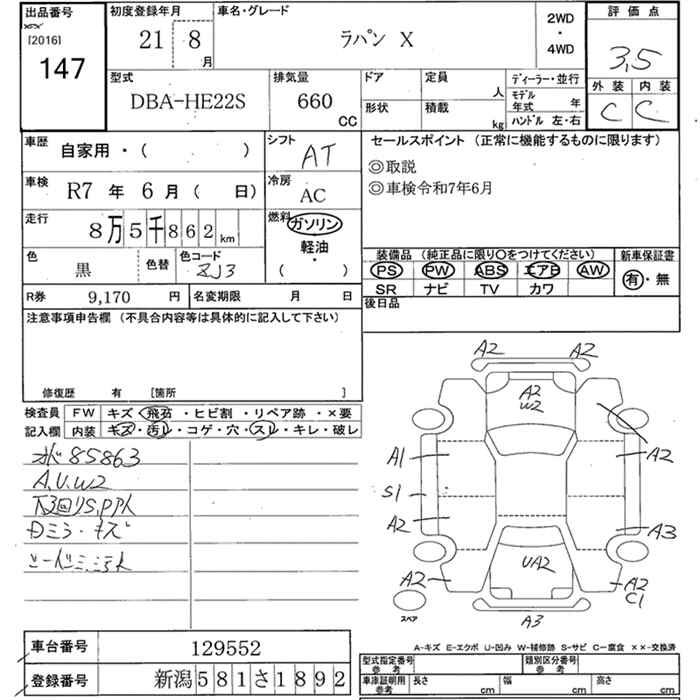 出品番号 初度登録年月 車名・グレード 2WD ・ 4WD 評価点
[2016] 21 8 月 ラパン X 3.5
147
型式 排気量 ドア 定員 人 ディーラー・並行 外装 内装
DBA-HE22S 660 CC 形状 積載 kg モデル年式 年 ハンドル 左・右 C C
車歴 自家用・( ) シフト AT セールスポイント (正常に機能するものに限ります)
◎取説
車検 R7 年 6 月 ( 日) 冷房 AC ◎車検令和7年6月
走行 8万5千862 km 燃料 ガソリン
軽油・( )
色 黒 色替 色コード ZJ3
装備品 (純正品に限り○をつけてください) 新車保証書
PS PW ABS エアB AW 有・無
SR ナビ TV カワ
R券 9,170 円 名変期限 月 日 後日品
注意事項申告欄 (不具合内容等は具体的に記入して下さい)
修復歴 有 [箇所 ]
検査員 FW キズ・飛石・ヒビ割・リペア跡・×要
記入欄 内装 キズ・汚レ・コゲ・穴・スレ・キレ・破レ
85863
A.U.W2
下回りS.PPK
Dミラ・キズ
A2 A2
A2
W2
A1 A2
S1
A2 A3
UA2
A2 A2
C1
スペア A3
A-キズ E-エクボ U-凹み W-補修跡 S-サビ C-腐食 ××-交換済
車台番号 129552
登録番号 新潟581さ1892
型式指定番号 参考 類別区分番号 参考
車庫証明用 参考 長さ cm 幅 cm 高さ cm